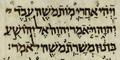 וַיְהִי אַחֲרֵי מוֹת מֹשֶׁה עֶבֶד
יְהוָה וַיֹּאמֶר יְהוָה אֶל־יְהוֹשֻׁעַ
בִּן־נוּן מְשָׁרֵת מֹשֶׁה לֵאמֹר׃